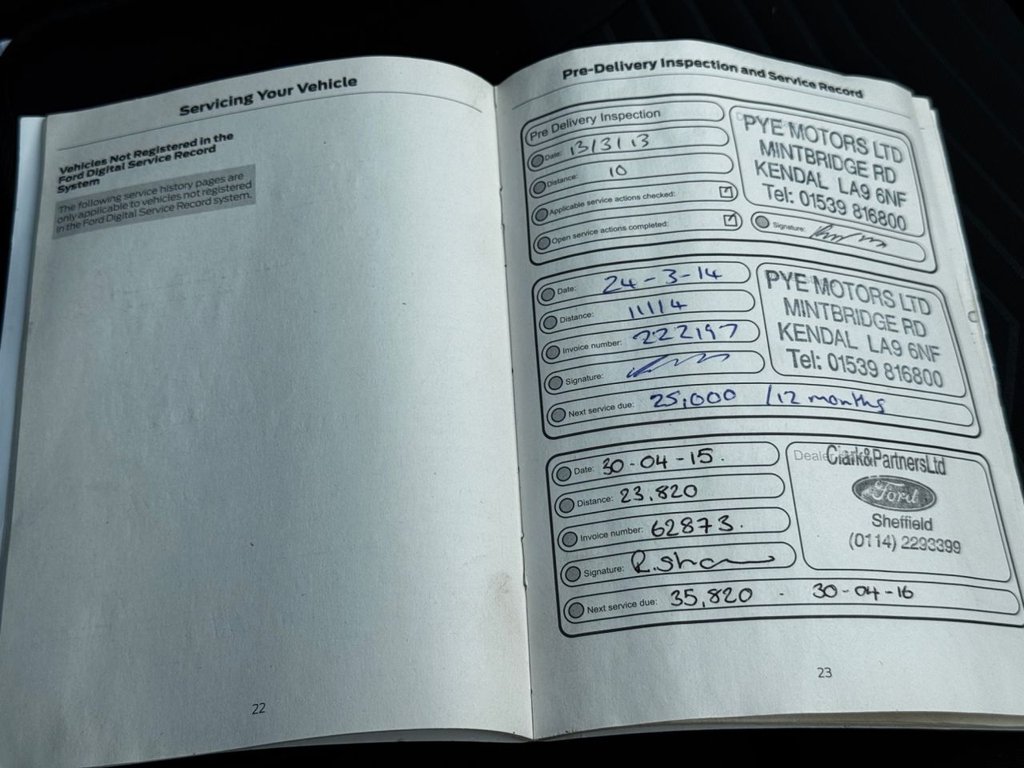 Servicing Your Vehicle
Vehicles Not Registered in the
Ford Digital Service Record
System
The following service history pages are
only applicable to vehicles not registered
in the Ford Digital Service Record system.
22
Pre-Delivery Inspection and Service Record
Pre Delivery Inspection
Date: 13/3/13
Distance: 10
Applicable service actions checked:
Open service actions completed:
PYE MOTORS LTD
MINTBRIDGE RD
KENDAL LA9 6NF
Tel: 01539 816800
Signature:
Date: 24-3-14
Distance: 11114
Invoice number: 222197
Signature:
Next service due: 25,000 /12 months
PYE MOTORS LTD
MINTBRIDGE RD
KENDAL LA9 6NF
Tel: 01539 816800
Date: 30-04-15.
Distance: 23,820
Invoice number: 62873.
Signature: R.Sha
Next service due: 35,820 - 30-04-16
Clark&PartnersLtd
Ford
Sheffield
(0114) 2293399
23